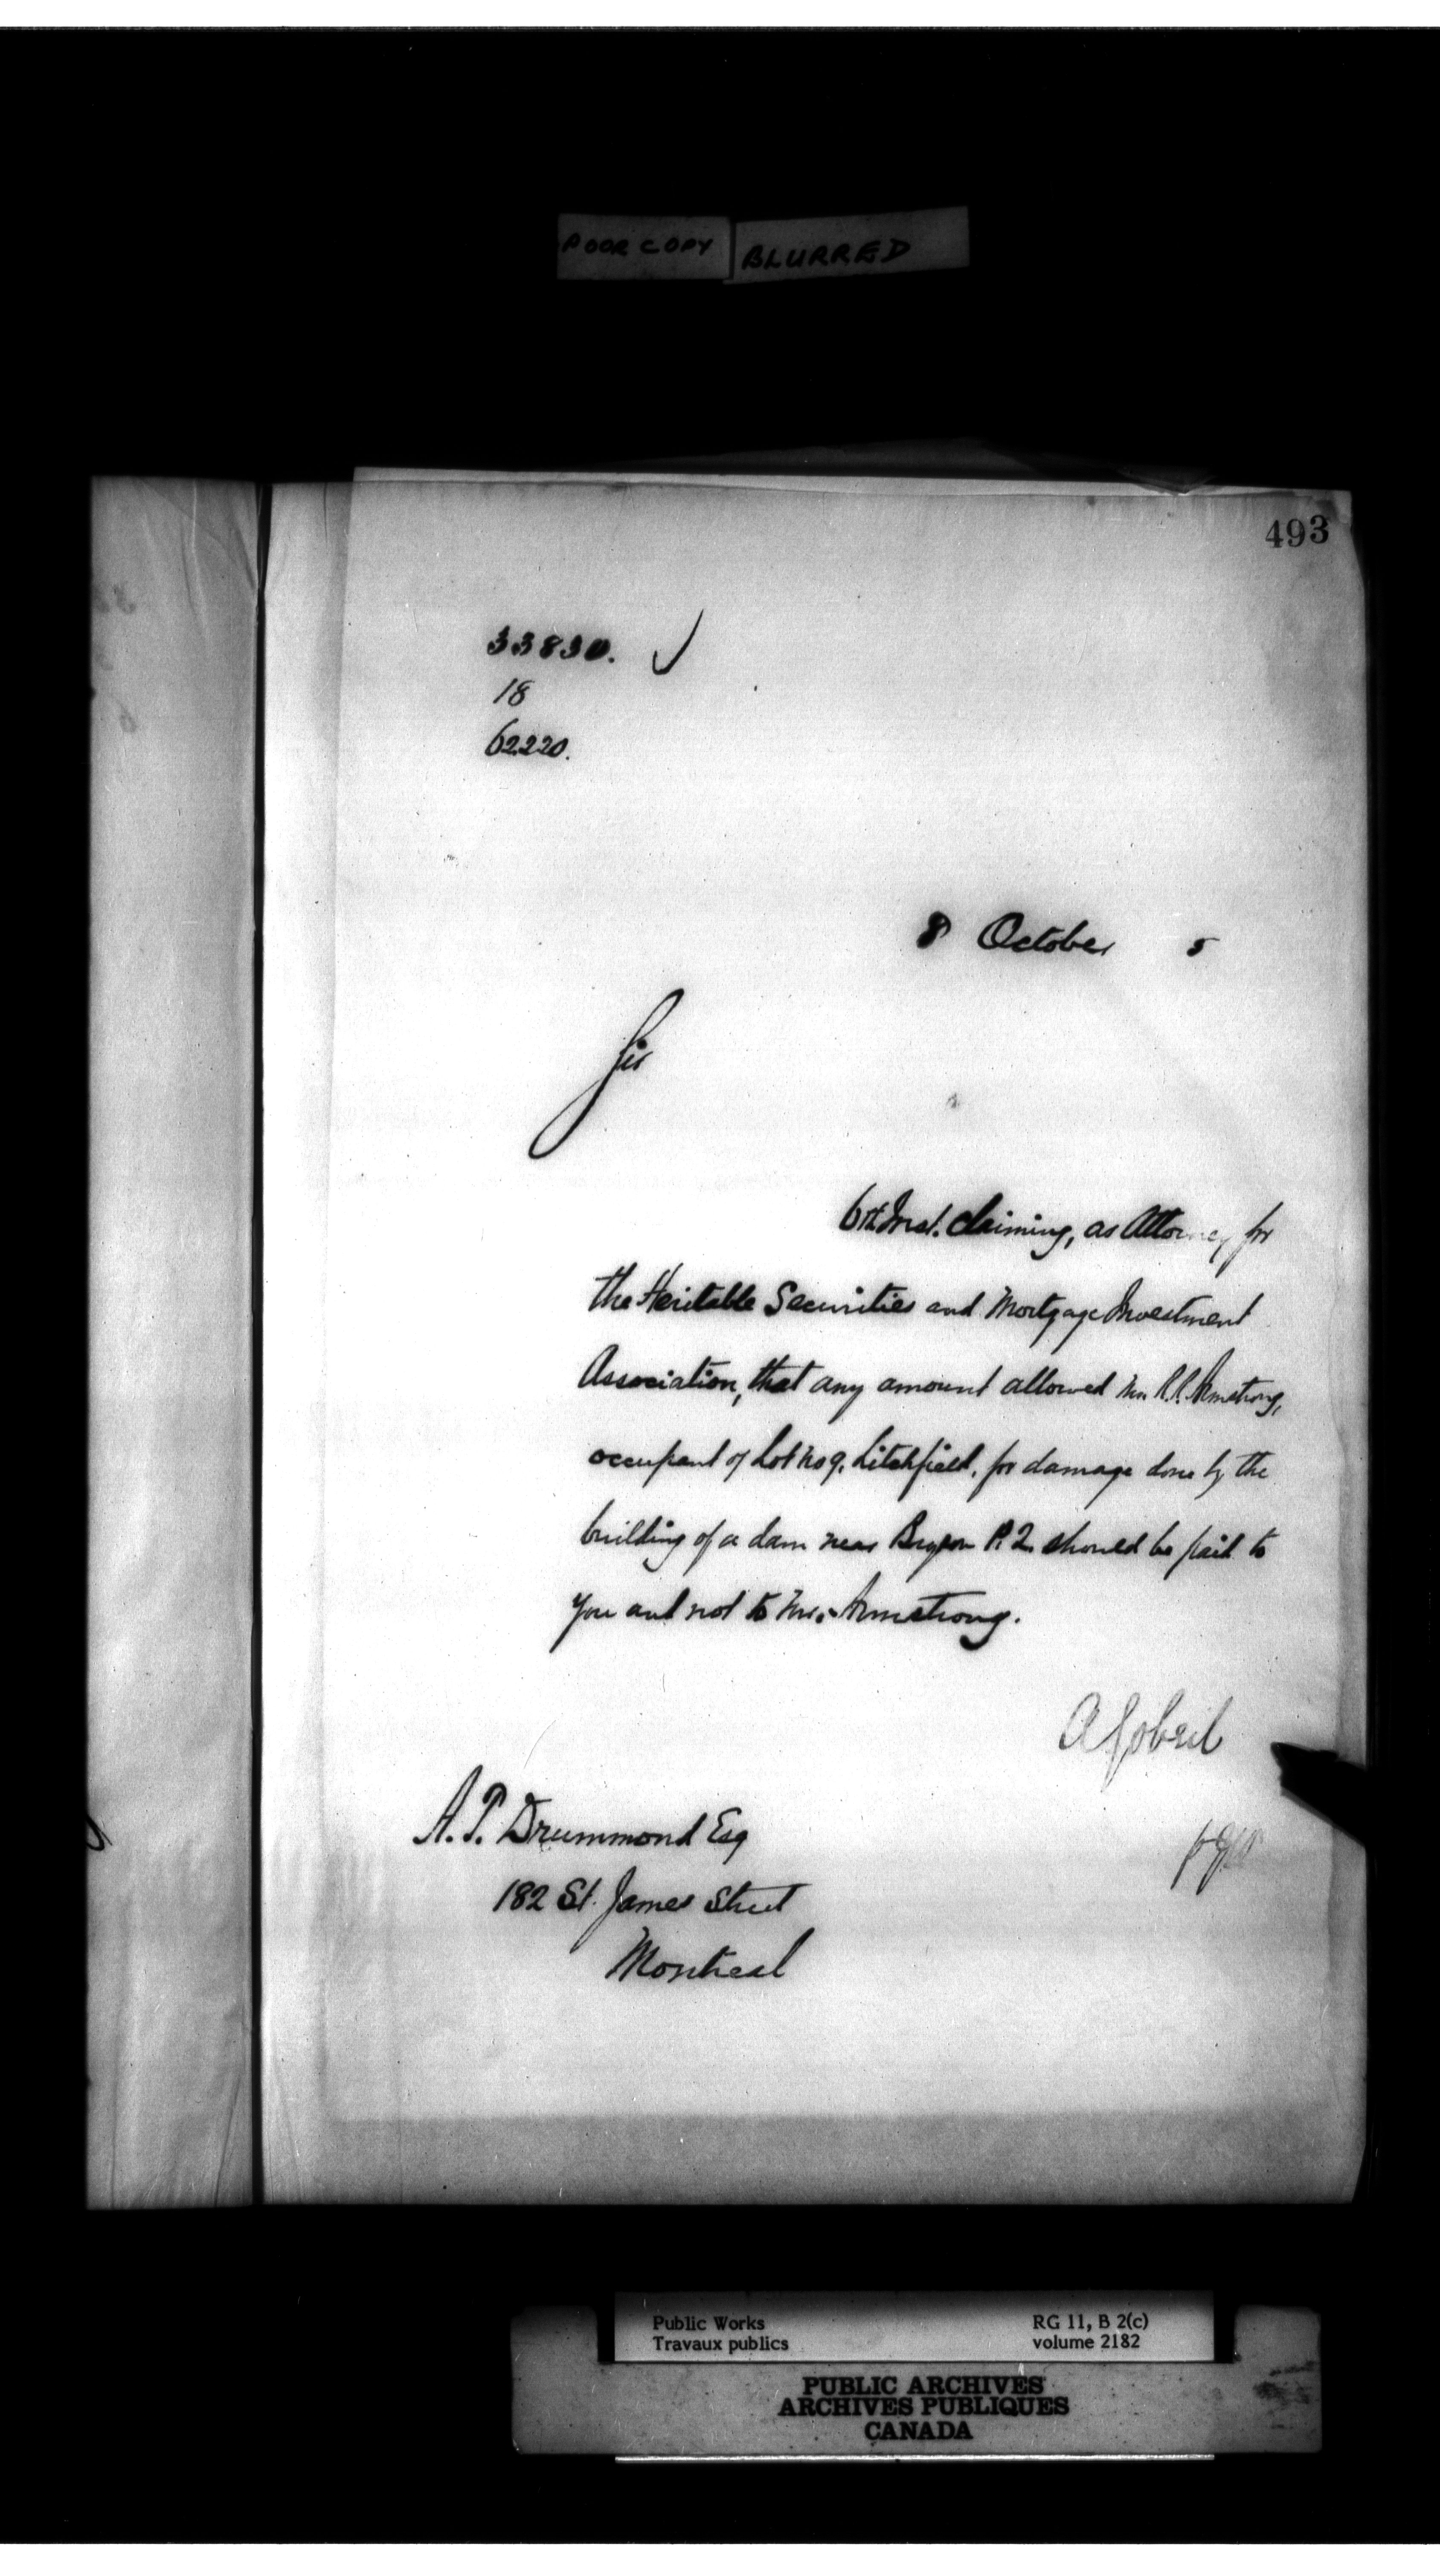 POOR COPY BLURRED
493
33830. ✓
18
62220.
8 October 5
Sir
6th Inst. claiming, as Attorney for
the Heritable Securities and Mortgage Investment
Association, that any amount allowed Mr. R.R. Armstrong,
occupant of Lot No 9, Litchfield, for damage done by the
building of a dam near Bryson P.Q. should be paid to
you and not to Mr. Armstrong.
A Gobeil
A. T. Drummond Esq
182 St. James Street
Montreal
Public Works RG 11, B 2(c)
Travaux publics volume 2182
PUBLIC ARCHIVES
ARCHIVES PUBLIQUES
CANADA